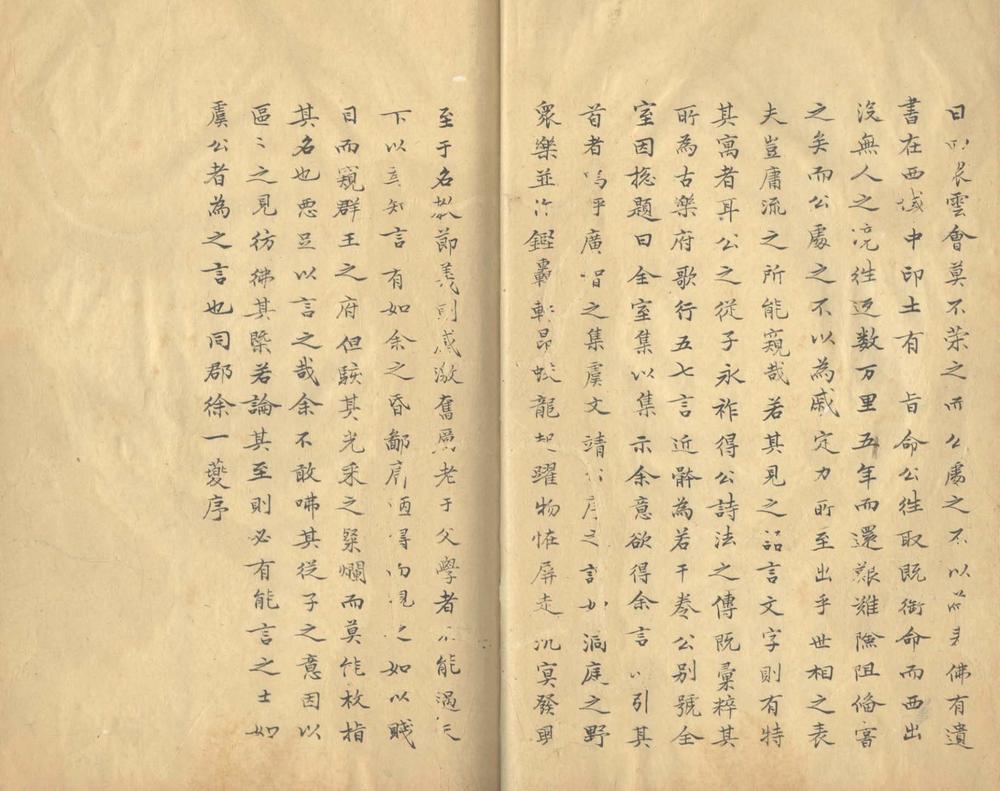 日 雲會莫不荣之而公處之不以 佛有遺
書在西域中印土有　旨命公徃取既銜命而西出
沒無人之境徃返数万里五年而還艱難險阻俻嘗
之矣而公處之不以為戚定力所至出乎世相之表
夫豈庸流之所能窺哉若其見之 言文字則有特
其寓者耳公之從子永祚得公詩法之傳既彙粹其
所為古樂府歌行五七言近骵為若干卷公别號全
室因揔題曰全室集以集示余意欲得余言以引其
首者嗚乎廣 之集虞文靖公序之 如洞庭之野
衆樂並 鏗轟軒昂蛟龍起躍物恠屏走沉冥發
至于名教節義則感激奮厲老于父學者不能過
下以 知言有如余之昏鄙 之如以賤
目而窺群王之府但駭其光采之粲爛而莫能枚指
其名也悪足以言之哉余不敢咈其從子之意因以
區〻之見彷彿其槩若論其至則必有能言之士如
虞公者為之言也同郡徐一夔序